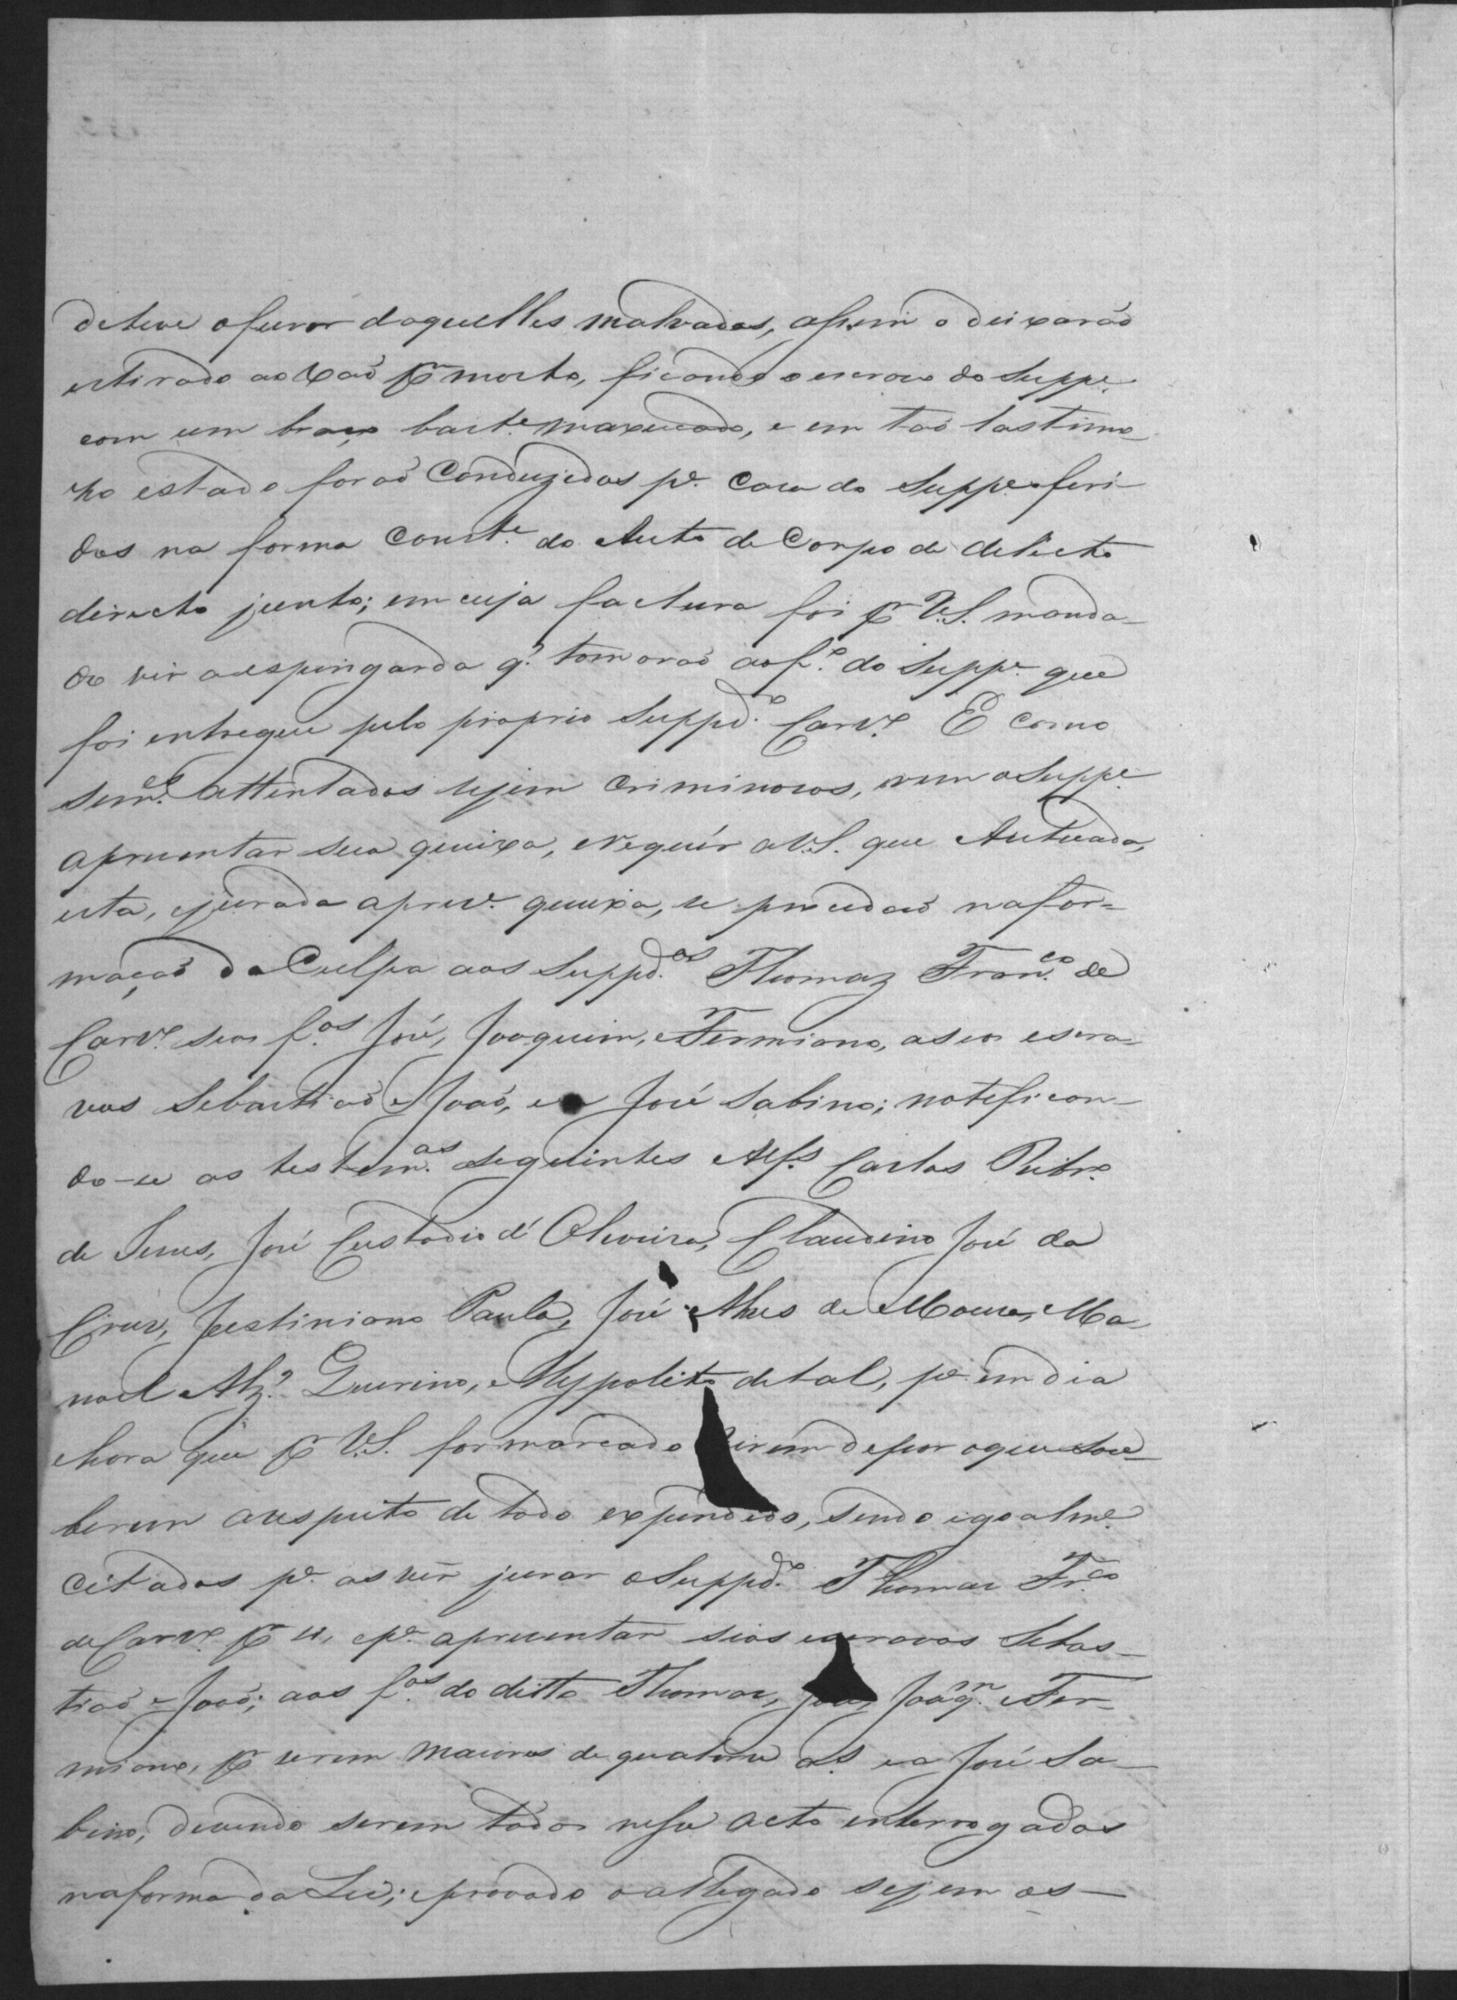 deteve o furor daquelles malvados, assim o deixaraõ
estirado ao xaõ pr morto, ficando o escravo do Suppe.
com um braço baste. maxucado, e em taõ lastimo-
zo estado foraõ Conduzidos pa. casa do Suppe. feri-
dos na forma const.e do Auto de Corpo de delicto
directo junto; em cuja factura foi pr V.S. manda-
do vir a espingarda q' tomaraõ ao fo. do Suppe. que
foi entregue pelo proprio Suppdo. Carve. E como
semes. attentados sejem criminosos, vem o Suppe.
apresentar sua queixa, e requér a V.S. que Autuada,
esta, e jurada a preze. queixa, se procedaõ na for=
maçaõ da Culpa aos Suppdos. Thomaz Franco. de
Carve. seos fos. José, Joaquim, e Fermiano, a seos escra-
vos Sebastiaõ e Joaõ, e a José Sabino; notifican-
do-se as testemas. seguintes Alfs. Carlos Ribro.
de Jesus, José Custodio d'Oliveira, Claudino José da
Cruz, Justiniano Paula, José Alves de Moura, Ma-
noel Alz' Querino, e Hyppolito de tal, pa. em dia
e hora que pr V.S. for marcado virem depor o que sou-
berem a respeito de todo expendido, sendo igoalme.
citados pa. as vêr jurar o Suppdo. Thomaz Frco.
de Carve. pr si, e pa. apresentar seos escravos Sebas-
tiaõ e Joaõ; aos fos. do ditto Thomaz, José, Joaqm. e Fer-
miano, pr serem maiores de quatorze as. e a José Sa-
bino, devendo serem todos nesse acto interrogados
na forma da Lei; e provado o allegado sejem os-